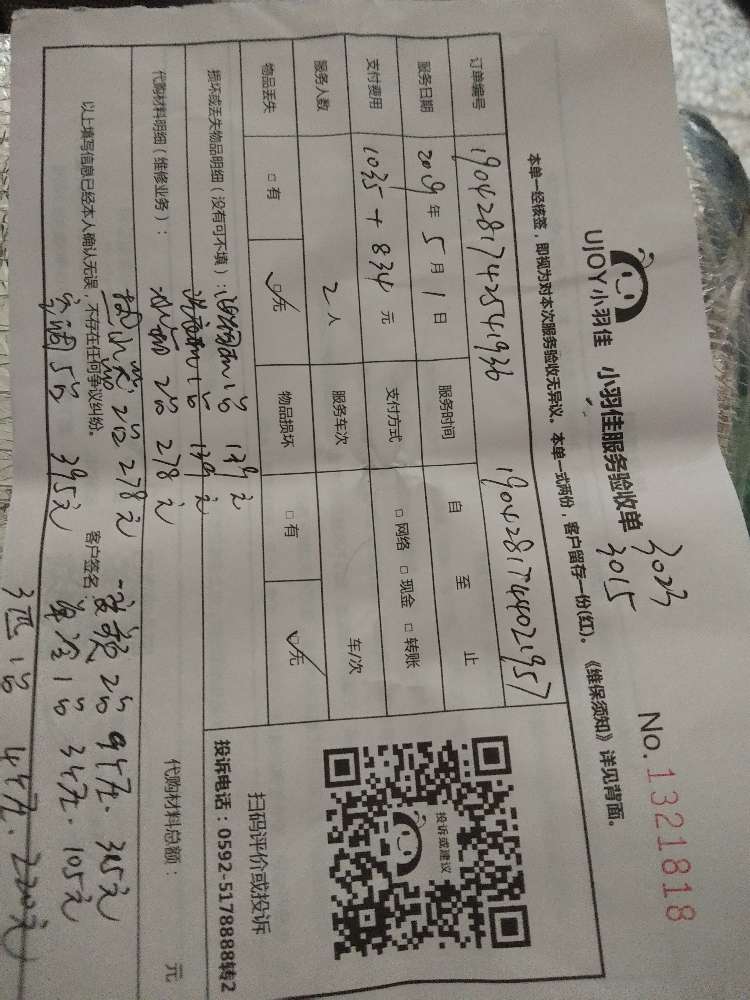 UJOY小羽佳 小羽佳服务验收单
3023
3015
No.1321818
本单一经核签，即视为对本次服务验收无异议。本单一式两份，客户留存一份(红)。《维保须知》详见背面。
订单编号 1904281742541936 1904281744021957
服务日期 2019年5月1日 服务时间 自 至 止
支付费用 1035+834元 支付方式 □网络 □现金 □转账
服务人数 2人 服务车次 车/次
物品丢失 □有 □无 物品损坏 □有 □无
损坏或丢失物品明细（没有可不填）：
1台 139元
1台 139元
代购材料明细（维修业务）：
代购材料总额： 元
冰箱 2台 278元
2台 278元
空调5台 395元
以上填写信息已经本人确认无误，不存在任何争议纠纷。
客户签名：
变频 2台 94元. 315元
单冷1台 34元. 105元
3匹 1台 44元. 220元
投诉或建议
扫码评价或投诉
投诉电话：0592-5178888转2